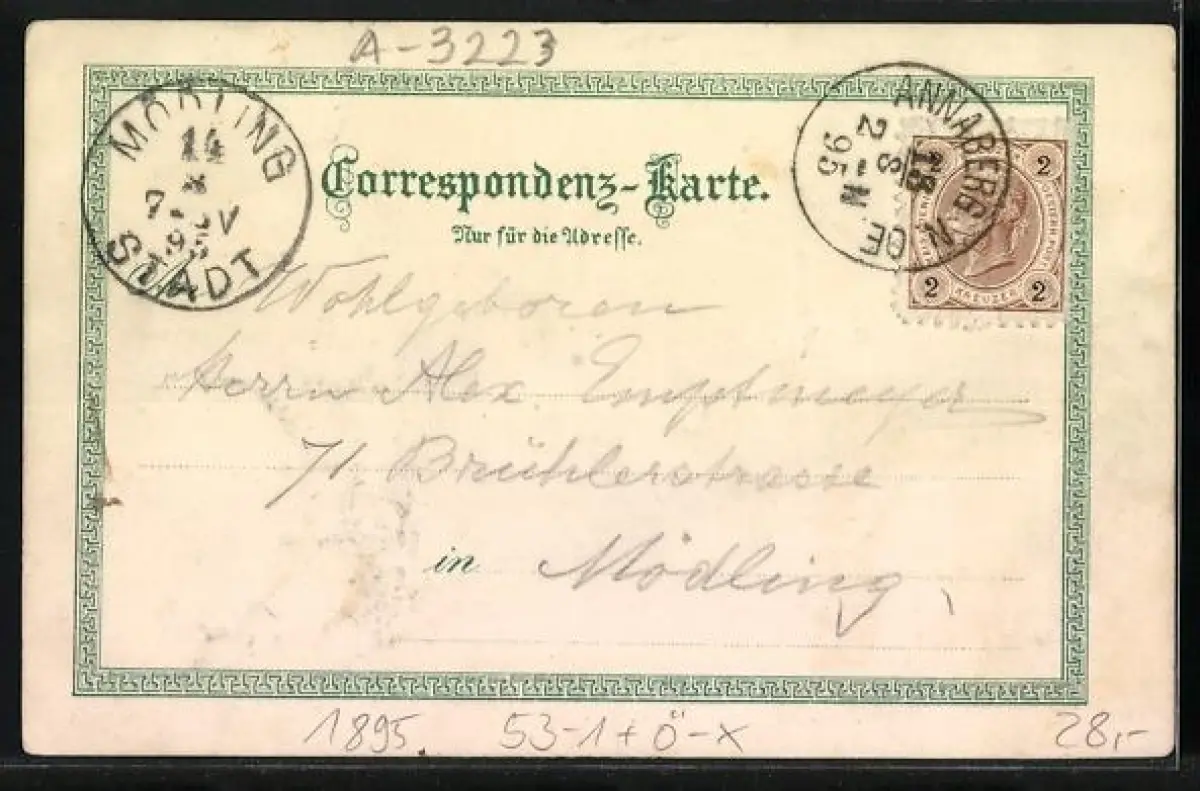 A-3223
MÖDLING
14
7-8V
95
STADT
ANNABERG N. OE
2 8
95
2
2
2
2
KREUZER
Correspondenz-Karte.
Nur für die Adresse.
Wohlgeboren
Herrn Alex. Emptmeyer
71. Brühlerstrasse
in Mödling
1895 53-1+Ö-X 28,-